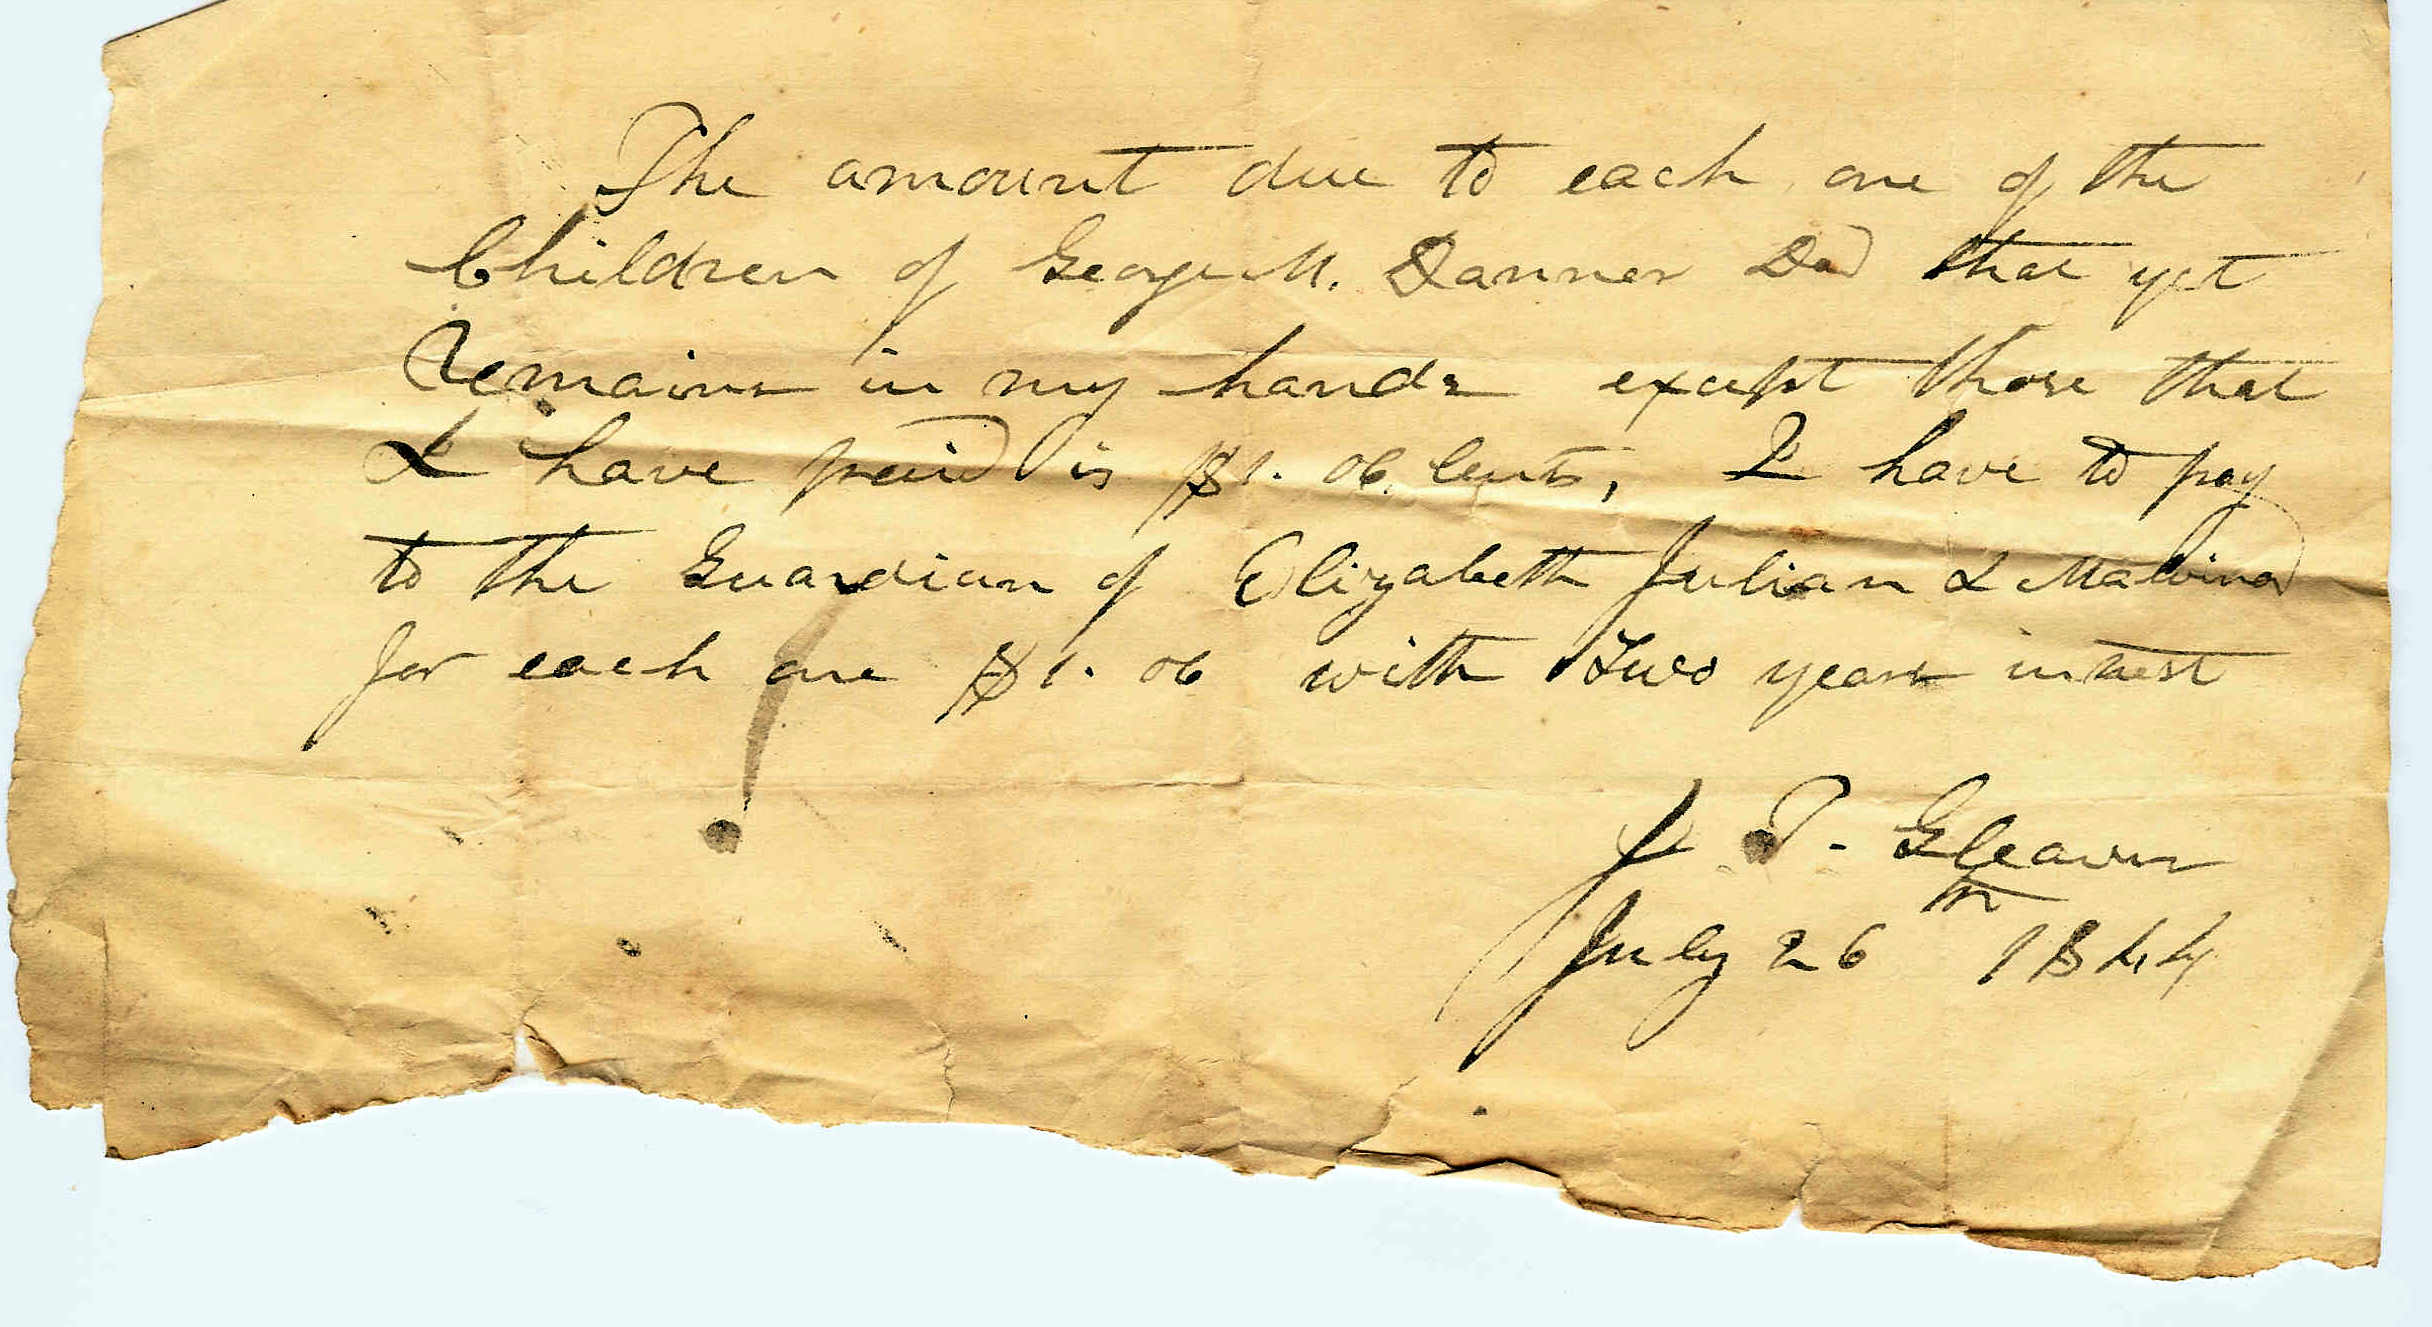 The amount due to each one of the
Children of George M. Danner Dcd that yet
Remains in my hands except those that
I have paid is $1. 06. Cents, I have to pay
to the Guardian of Elizabeth Julian & Malvina
for each one $1. 06 with Two years interest
J. T. Gleaves
July 26th 1844